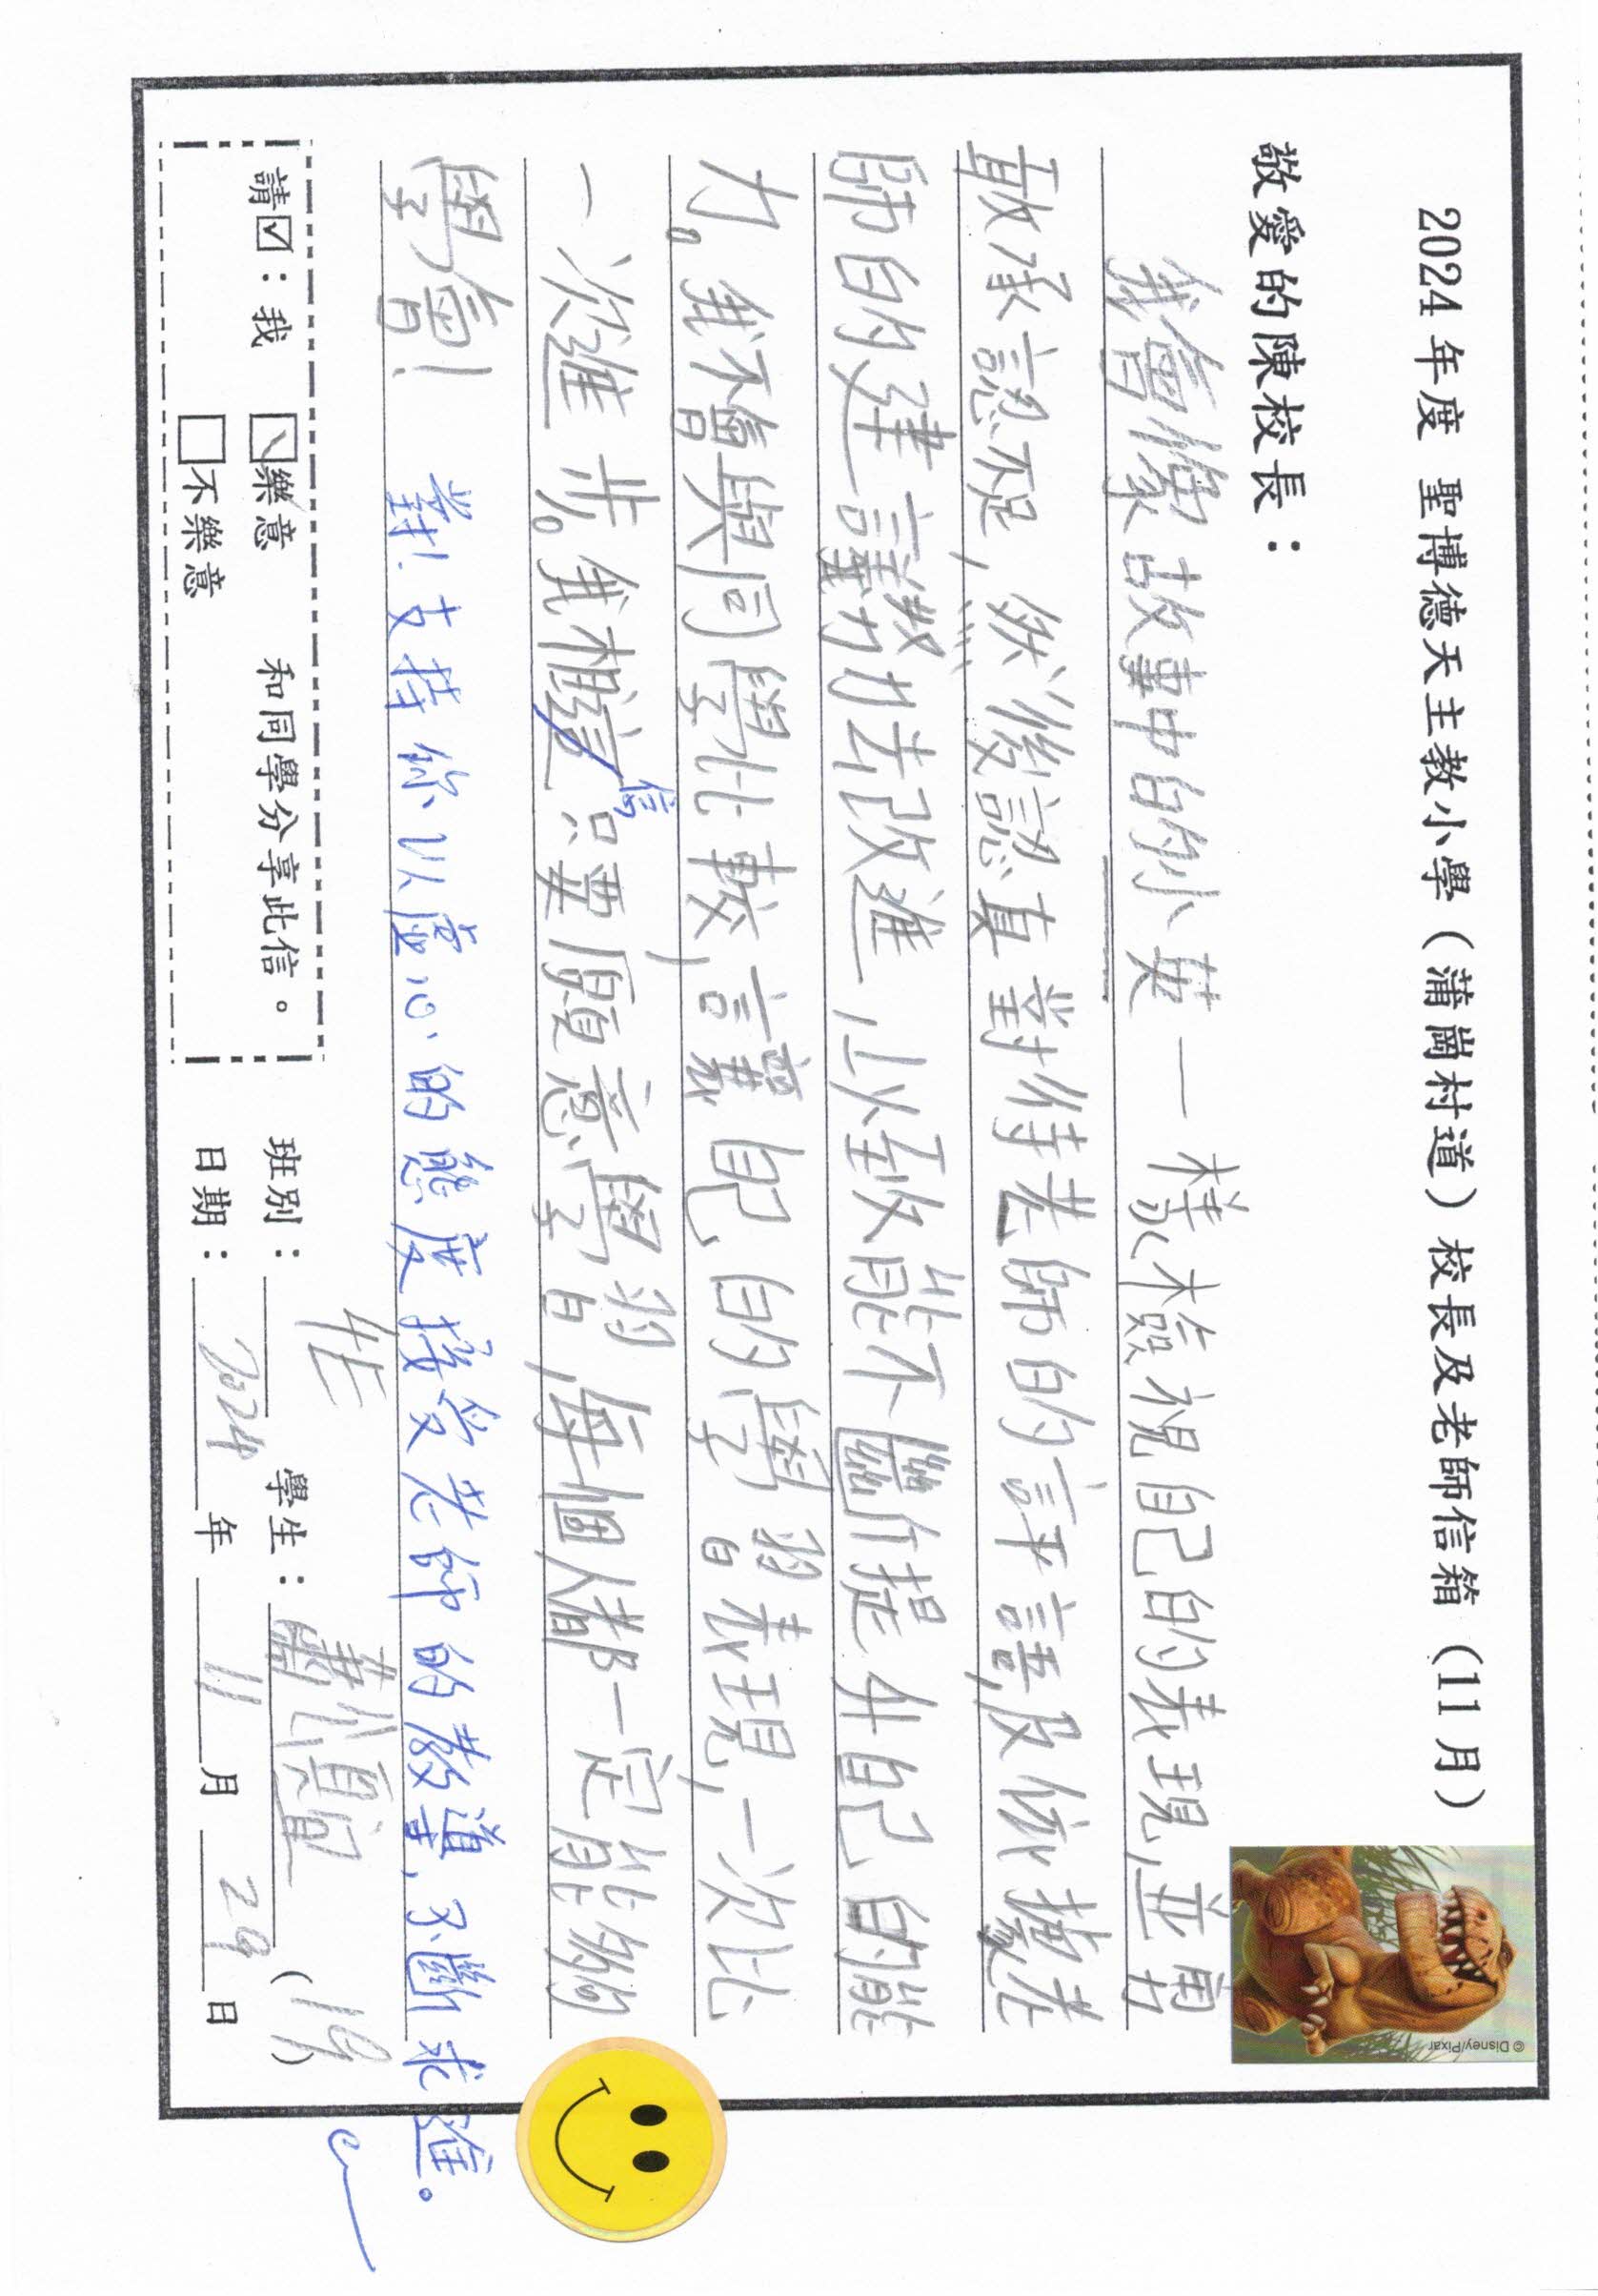 2024年度 聖博德天主教小學（蒲崗村道）校長及老師信箱（11月）
© Disney/Pixar
敬愛的陳校長：
我會像故事中的小英一樣檢視自己的表現，並勇
敢承認不足，然後認真對待老師的評語及依據老
師的建議努力去改進，以致能不斷提升自己的能
力。我不會與同學比較，讓自己的學習表現，一次比
一次進步。我相信只要願意學習，每個人都一定能夠
學會！
對！支持你以虛心的態度接受老師的教導，不斷求進。
請☑：我 ☑樂意 和同學分享此信。
□不樂意
班別：4E 學生：蕭 (19)
日期：2024年11月29日